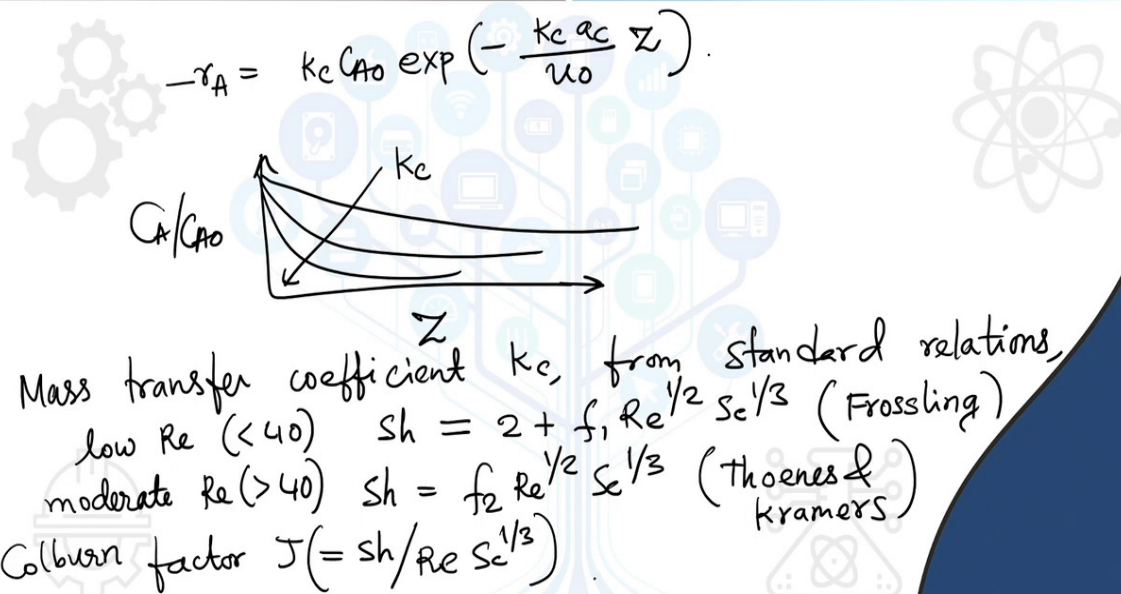 -rA = kc CA0 exp (- kc ac / u0 z).
kc
CA/CA0
z
Mass transfer coefficient kc, from standard relations,
low Re (<40) Sh = 2 + f1 Re^1/2 Sc^1/3 (Frossling)
moderate Re (>40) Sh = f2 Re^1/2 Sc^1/3 (Thoenes & Kramers)
Colburn factor J (= Sh/Re Sc^1/3).